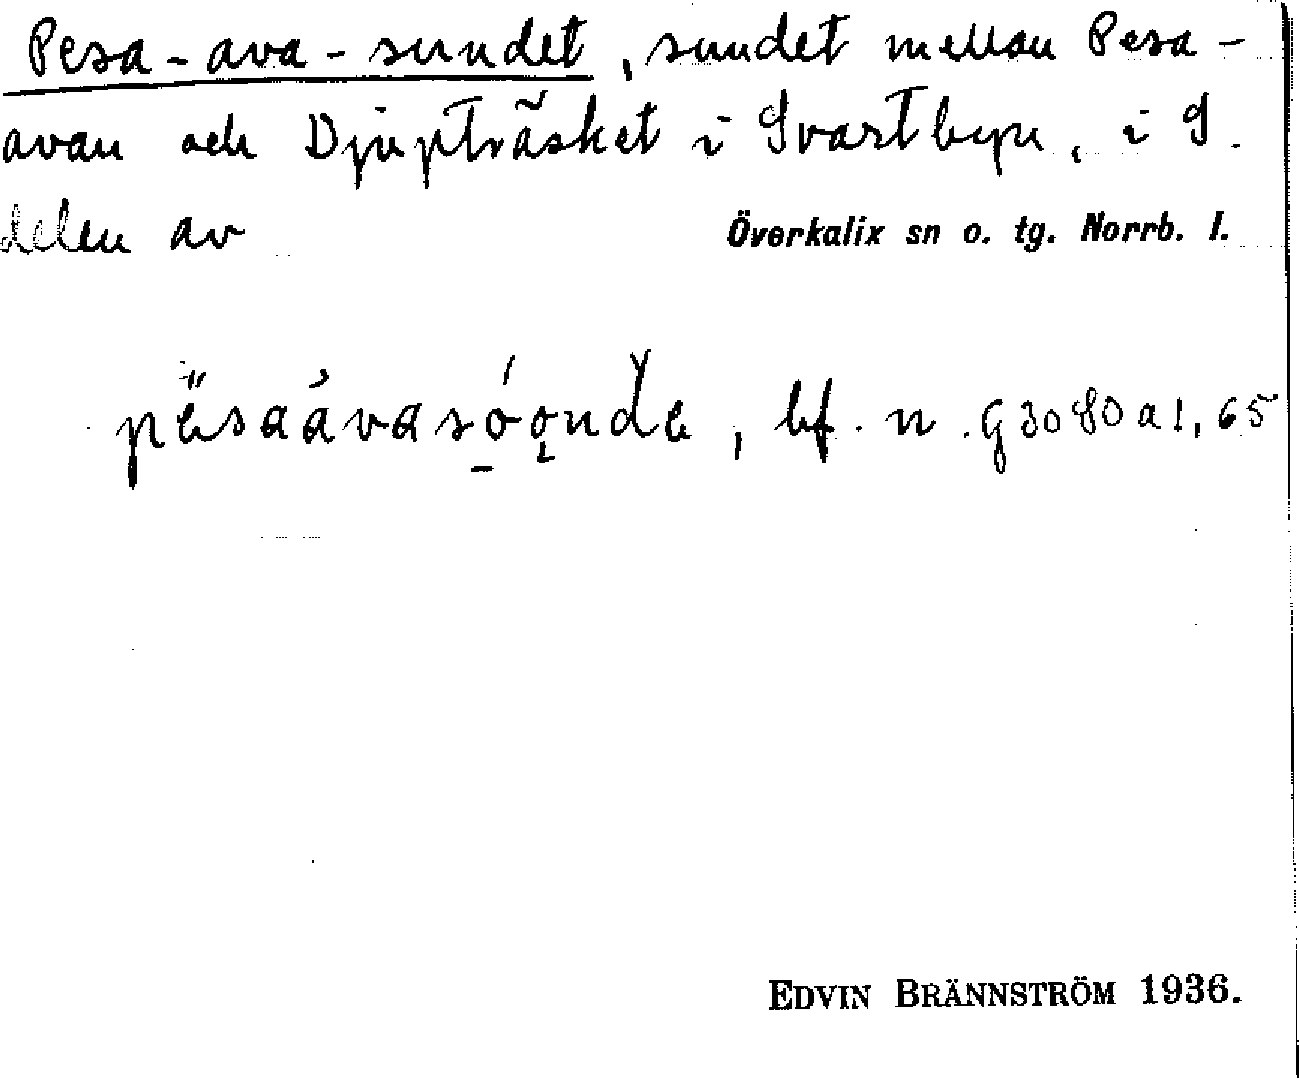 Pesa-ava-sundet, sundet mellan Pesa-
avan och Djupträsket i Svartbyn, i S.
delen av Överkalix sn o. tg. Norrb. l.
pësaávasóonde, bf. n. G3080a1,65
EDVIN BRÄNNSTRÖM 1936.